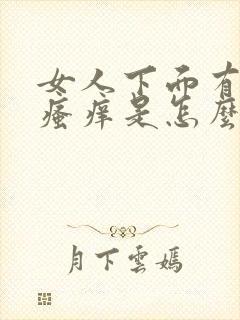 女人下面有
瘙痒是怎麼
月下雲嫣